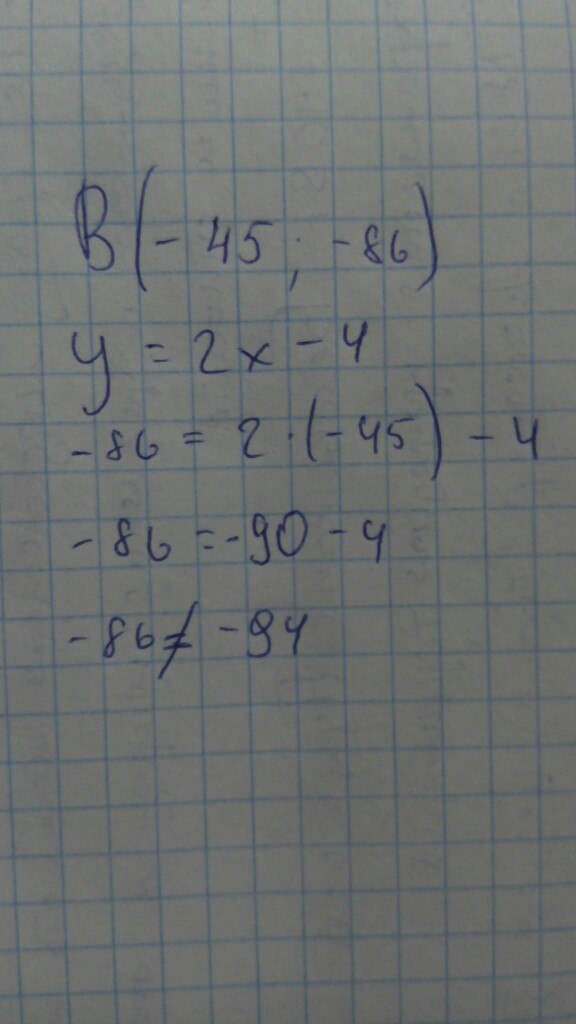 B(-45; -86)
y = 2x - 4
-86 = 2·(-45) - 4
-86 = -90 - 4
-86 ≠ -94